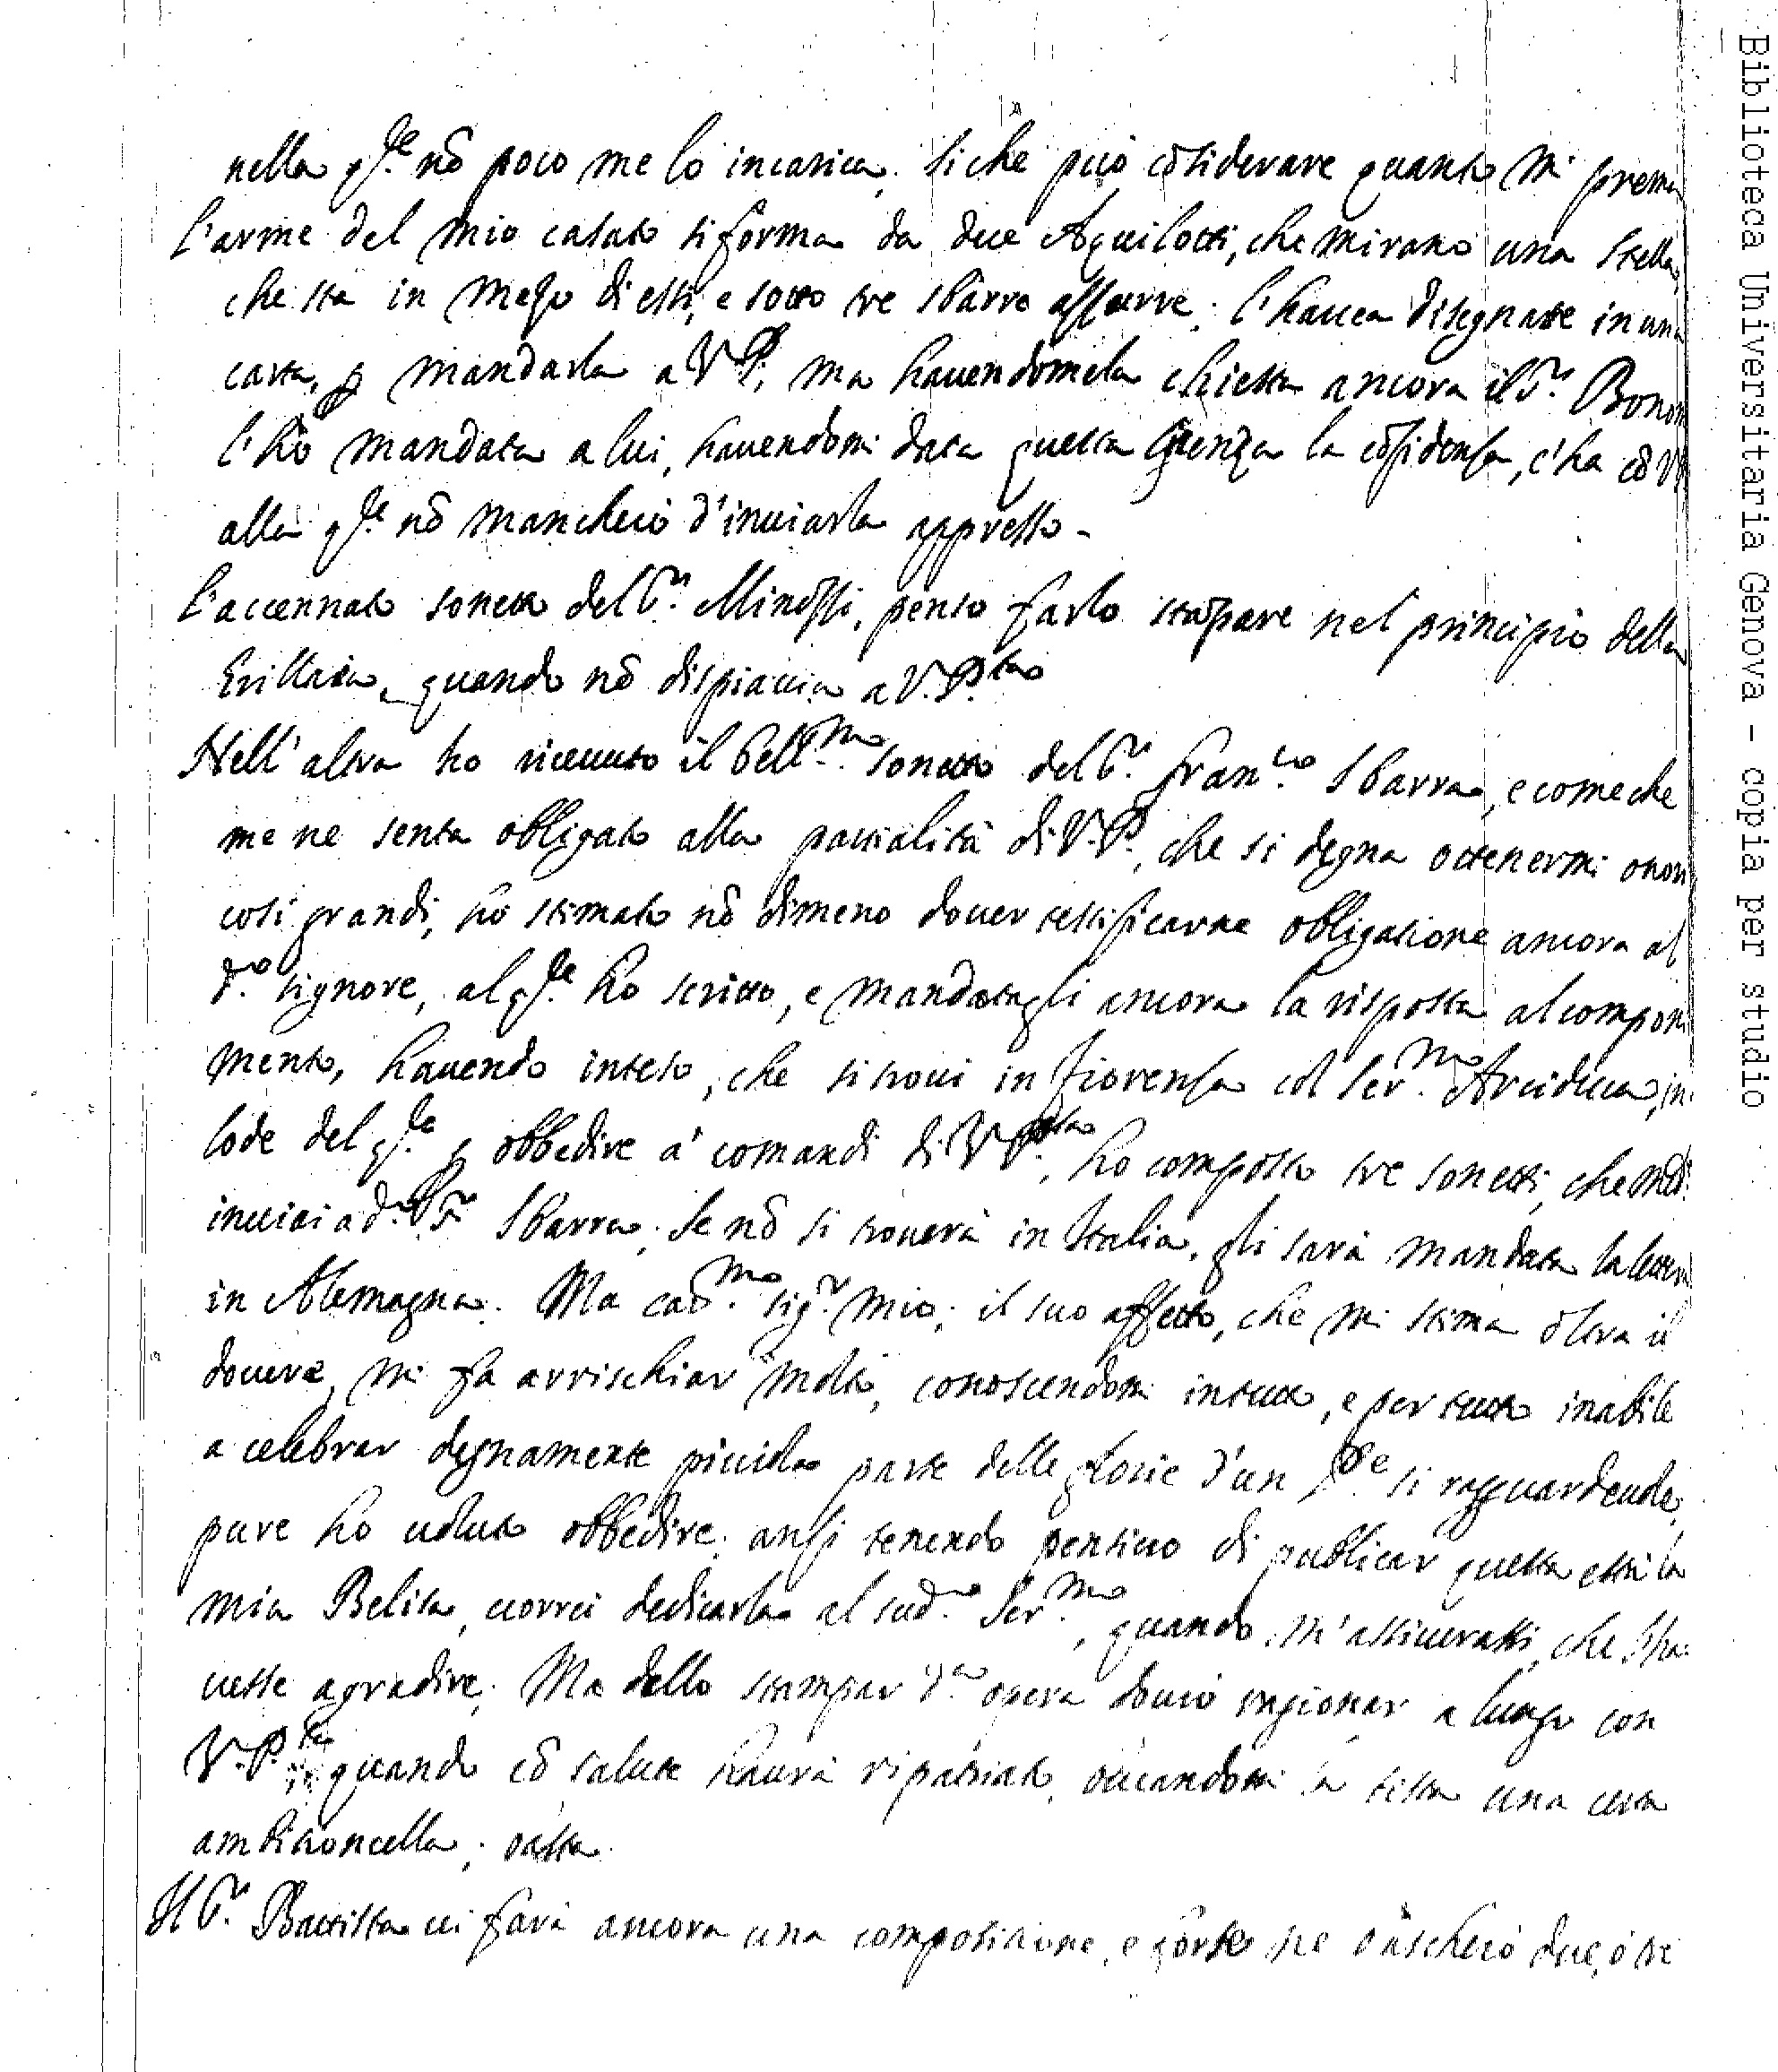 nella q.le nõ poco me lo incarica. Si che può cõsiderare quanto mi prema
l'arme del mio casato si forma da due Aquilotti, che mirano una stella,
che sta in mezo di essi, e sotto tre sbarre assurre. l'hauea disegnata in una
carta, p mandarla a V.P. ma hauendomela chiesta ancora il S.r Bonom
l'hò mandata a lui, hauendomi data questa licenza la cõfidensa, c'ha cõ V.P
alla q.le nõ mancherò d'inuiarla appresso.
l'accennato sonetto del S.r Minossi, penso farlo stãpare nel principio della
quando nõ dispiaccia a V.P.tà
Nell'altra ho riceuuto il bell.mo sonetto del S.r Fran.co Sbarra, e come che
me ne senta obligato alla partialità di V.P., che si degna ottenermi onori
così grandi, hò stimato nõ dimeno douer testificarne obligatione ancora al
d.o signore, al q.le ho scritto, e mandatagli ancora la risposta al componi
mento, hauendo inteso, che si troui in Fiorensa col Ser.mo Arciduca, in
lode del q.le p obbedire a' comandi di V.P.tà, ho composto tre sonetti, che
inuiai a d.o S.r Sbarra. Se nõ si trouerà in Italia, gli sarà mandata la lettera
in Alemagna. Ma car.mo sig.r mio, il suo affetto, che mi stima oltra il
douere, mi fa arrischiar molto, conoscendomi in tutto, e per tutto inabile
a celebrar degnamente picciola parte delle glorie d'un P.pe si ragguardeuole,
pure ho uoluto obbedire. ansi tenendo pensiero di publicar questa està la
mia Belisa, uorrei dedicarla al sud.o Ser.mo, quando m'assicurassi, che l'ha
uesse a gradire. Ma dello stampar d.a opera dourò ragionar a lungo con
V.P.tà quando cõ salute haurà ripatriato, toccandomi la testa una certa
ambitioncella, basta.
Il S.r Battista ui farà ancora una compositione, e forse ne buscherò due, ò tre
Biblioteca Universitaria Genova - copia per studio